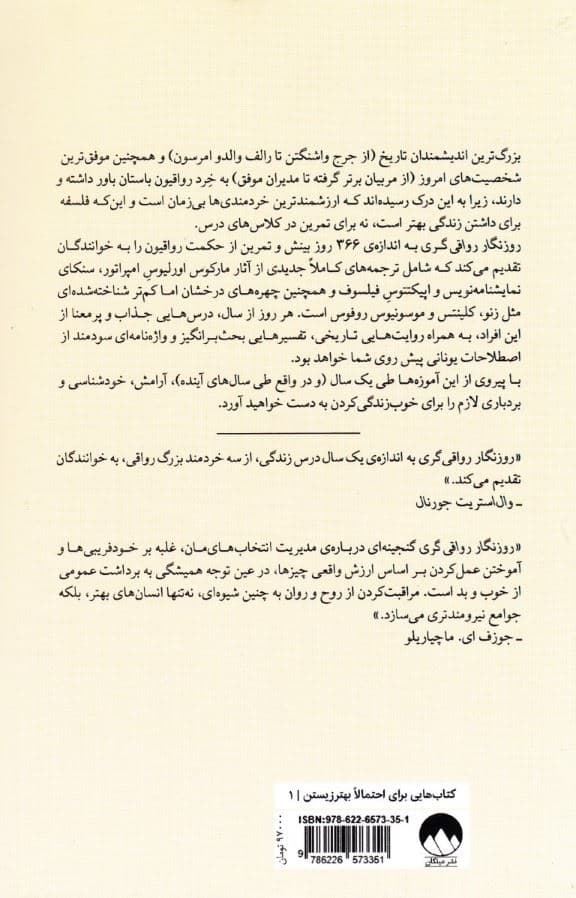 بزرگ‌ترین اندیشمندان تاریخ (از جرج واشنگتن تا رالف والدو امرسون) و همچنین موفق‌ترین
شخصیت‌های امروز (از مربیان برتر گرفته تا مدیران موفق) به خِرد رواقیون باستان باور داشته و
دارند، زیرا به این درک رسیده‌اند که ارزشمندترین خردمندی‌ها بی‌زمان است و این‌که فلسفه
برای داشتن زندگی بهتر است، نه برای تمرین در کلاس‌های درس.
روزنگار رواقی‌گری به اندازه‌ی ۳۶۶ روز بینش و تمرین از حکمت رواقیون را به خوانندگان
تقدیم می‌کند که شامل ترجمه‌های کاملاً جدیدی از آثار مارکوس اورلیوسِ امپراتور، سنکای
نمایشنامه‌نویس و اپیکتتوسِ فیلسوف و همچنین چهره‌های درخشان اما کم‌تر شناخته‌شده‌ای
مثل زنو، کلینتس و موسونیوس روفوس است. هر روز از سال، درس‌هایی جذاب و پرمعنا از
این افراد، به همراه روایت‌هایی تاریخی، تفسیرهایی بحث‌برانگیز و واژه‌نامه‌ای سودمند از
اصطلاحات یونانی پیش روی شما خواهد بود.
با پیروی از این آموزه‌ها طی یک سال (و در واقع طی سال‌های آینده)، آرامش، خودشناسی و
بردباری لازم را برای خوب‌زندگی‌کردن به دست خواهید آورد.
«روزنگار رواقی‌گری به اندازه‌ی یک سال درس زندگی، از سه خردمند بزرگ رواقی، به خوانندگان
تقدیم می‌کند.»
ـ وال‌استریت جورنال
«روزنگار رواقی‌گری گنجینه‌ای درباره‌ی مدیریت انتخاب‌های‌مان، غلبه بر خودفریبی‌ها و
آموختن عمل‌کردن بر اساس ارزش واقعی چیزها، در عین توجه همیشگی به برداشت عمومی
از خوب و بد است. مراقبت‌کردن از روح و روان به چنین شیوه‌ای، نه‌تنها انسان‌های بهتر، بلکه
جوامع نیرومندتری می‌سازد.»
ـ جوزف ای. ماچیاریلو
کتاب‌هایی برای احتمالاً بهترزیستن | ۱
ISBN:978-622-6573-35-1
9 786226 573351
۹۷۰۰۰ تومان
نشر میلکان